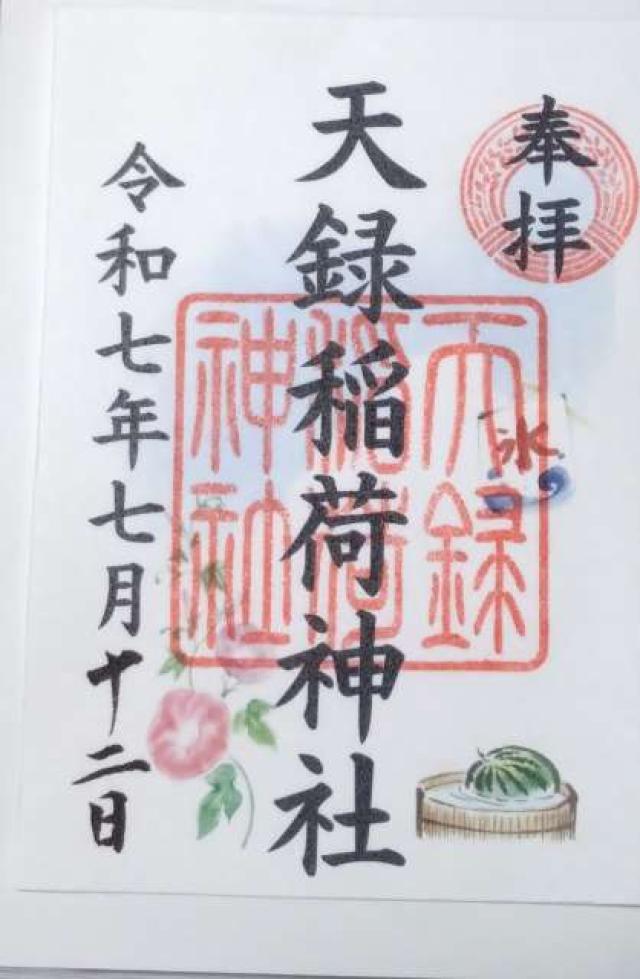 奉拝
天録稲荷神社
令和七年七月十二日
天録
稲荷
神社
氷